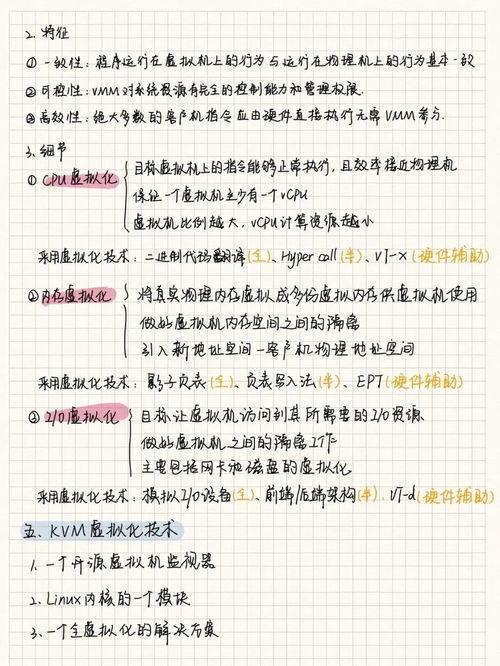 2. 特征
① 一致性：程序运行在虚拟机上的行为与运行在物理机上的行为基本一致
② 可控性：VMM对系统资源有完全的控制能力和管理权限.
③ 高效性：绝大多数的客户机指令应由硬件直接执行无需VMM参与.
3. 细节
① CPU虚拟化 { 目标虚拟机上的指令能够正常执行，且效率接近物理机
保证一个虚拟机至少有一个vCPU
虚拟机比例越大，vCPU计算资源越小
采用虚拟化技术：二进制代码翻译(全)、Hyper call(半)、VT-x(硬件辅助)
② 内存虚拟化 { 将真实物理内存虚拟成多份虚拟内存供虚拟机使用
做好虚拟机内存空间之间的隔离
引入新地址空间—客户机物理地址空间
采用虚拟化技术：影子页表(全)、页表写入法(半)、EPT(硬件辅助)
③ I/O虚拟化 { 目标让虚拟机访问到其所需要的I/O资源
做好虚拟机之间的隔离工作
主要包括网卡和磁盘的虚拟化
采用虚拟化技术：模拟I/O设备(全)、前端/后端架构(半)、VT-d(硬件辅助)
五、KVM虚拟化技术
1. 一个开源虚拟机监视器
2. Linux内核的一个模块
3. 一个全虚拟化的解决方案